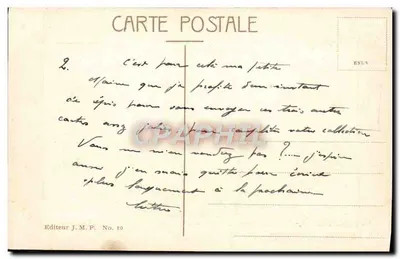 CARTE POSTALE
2. C'est pour cela ma petite
que je profite d'un instant
de répis pour vous envoyer ces trois autres
cartes assez jolies pour compléter votre collection
Vous ne m'en voudrez pas ?... j'espère
aussi je en mais quitte pour écrire
plus longuement à la prochaine
lettre.
CPAPHIL
Editeur J. M. P. No. 10